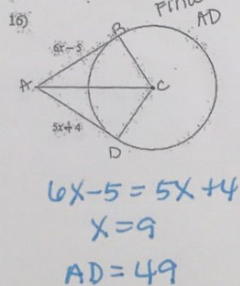 16)
Find
AD
B
6x-5
A
C
5x+4
D
6x-5=5x+4
x=9
AD=49